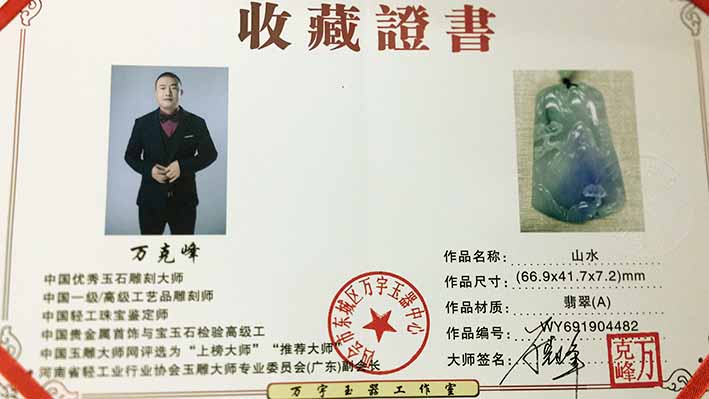 收藏證書
万克峰
中国优秀玉石雕刻大师
中国一级/高级工艺品雕刻师
中国轻工珠宝鉴定师
中国贵金属首饰与宝玉石检验高级工
中国玉雕大师网评选为“上榜大师”“推荐大师”
河南省轻工业行业协会玉雕大师专业委员会(广东)副会长
作品名称: 山水
作品尺寸: (66.9x41.7x7.2)mm
作品材质: 翡翠(A)
作品编号: WY691904482
大师签名:
万克峰
市东城区万宇玉器中心
万宇玉器工作室